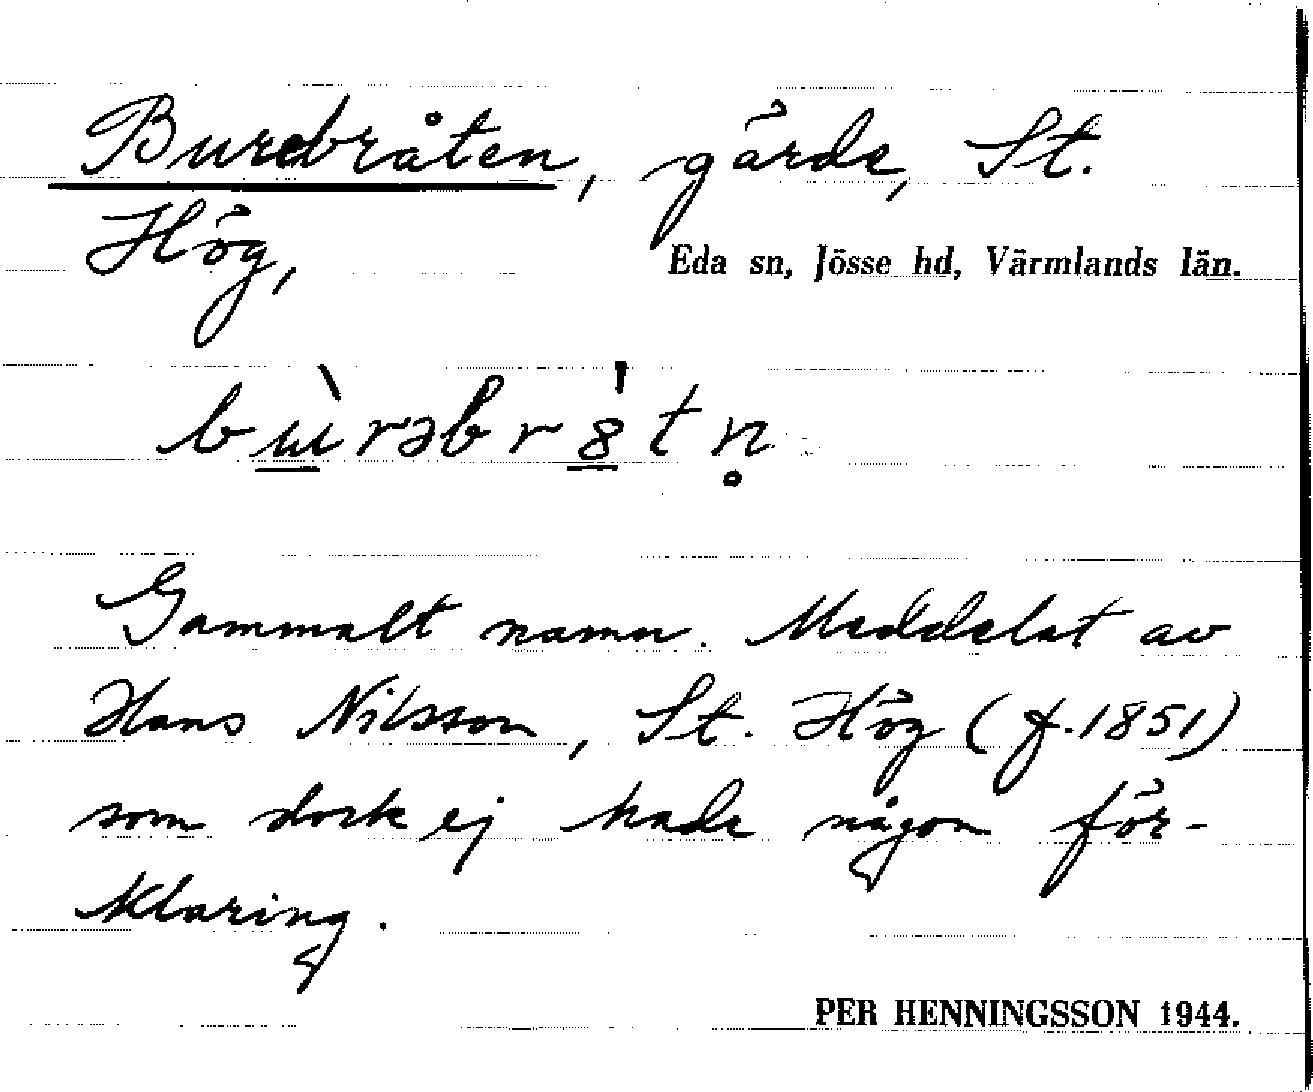 Burebråten, gärde, St.
Hög,
Eda sn, Jösse hd, Värmlands län.
bù̲rəbr8̲̍tn̥
Gammalt namn. Meddelat av
Hans Nilsson, St. Hög (f. 1851)
som dock ej hade någon för-
klaring.
PER HENNINGSSON 1944.